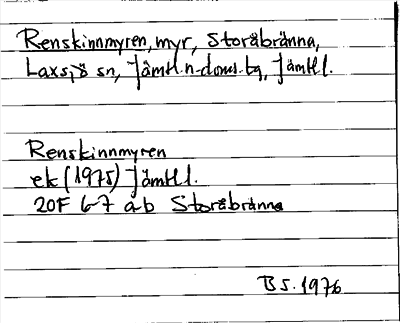 Renskinnmyren, myr, Storåbränna,
Laxsjö sn, Jämtl.n-doms.tg, Jämtl l.
Renskinnmyren
ek (1975) Jämtl l.
20F 6-7 a-b Storåbränna
BS. 1976